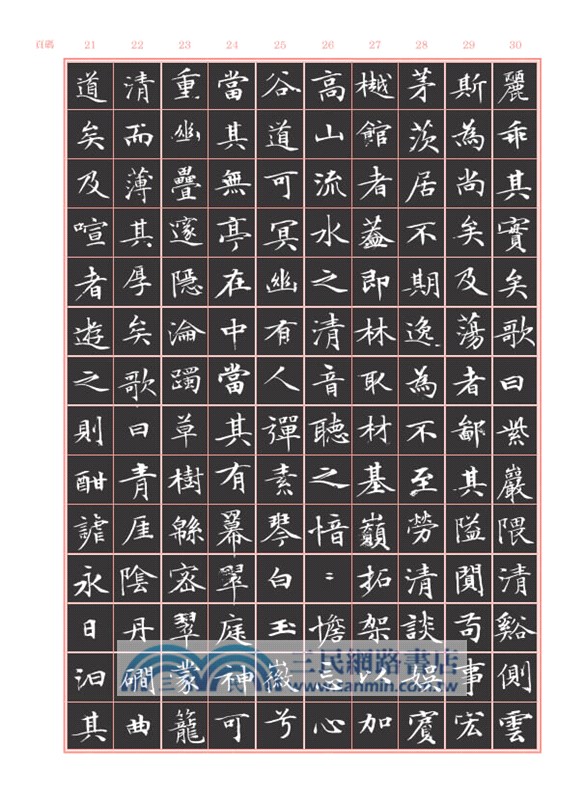 頁碼 21 22 23 24 25 26 27 28 29 30
道矣及喧者遊之則酣謔永日汩其
清而薄其厚矣歌曰青厓陰丹磵曲
重幽疊邃隱淪躅草樹緜密翠濛籠
當其無亭在中當其有冪翠庭神可
谷道可冥幽有人彈素琴白玉徽兮
高山流水之清音聽之愔〻憺忘心
樾館者蓋即林取材基巔拓架以加
茅茨居不期逸為不至勞清談娛賓
斯為尚矣及蕩者鄙其隘閴苟事宏
麗乖其實矣歌曰紫巖隈清谿側雲
三民網路書店
www.sanmin.com.tw